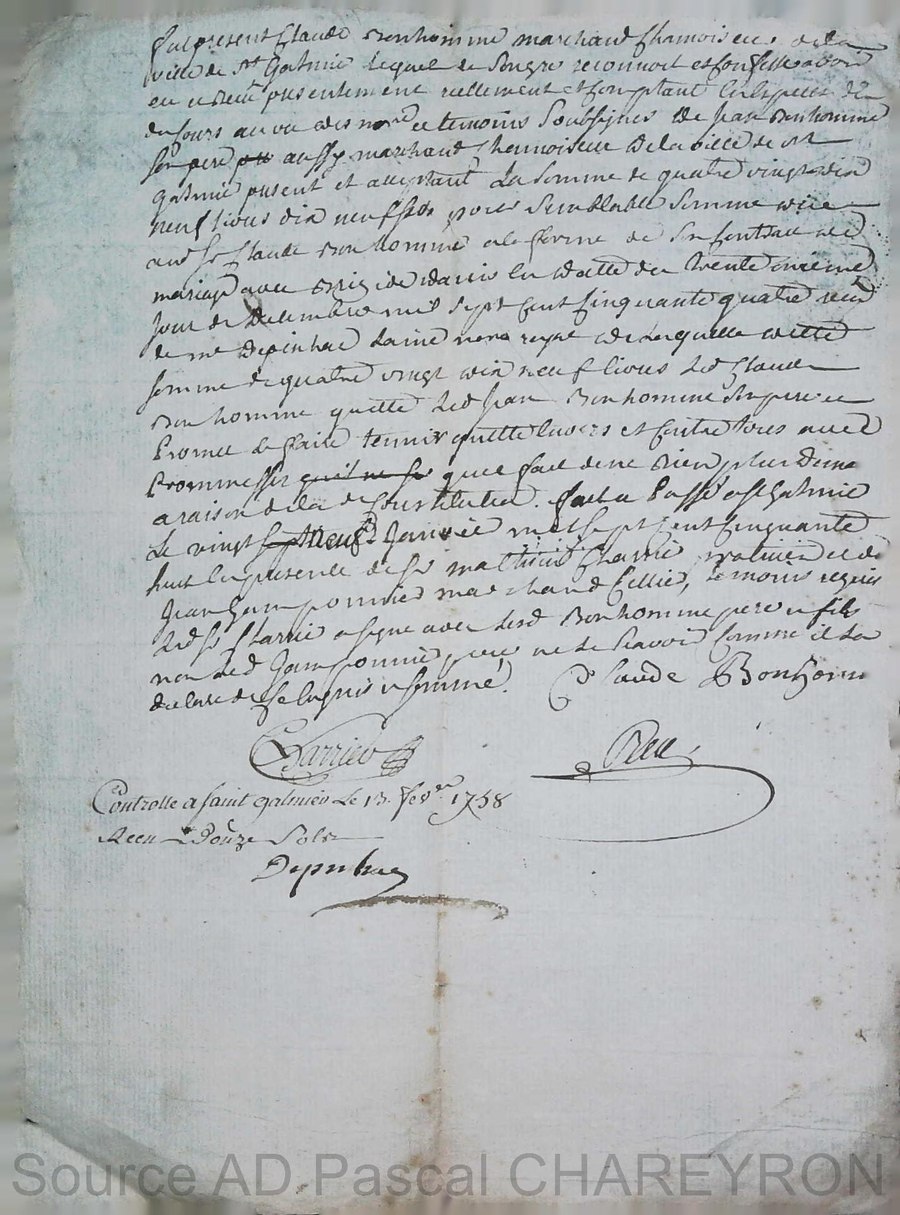 fut present Claude Bonhomme marchand Chamoiseur de la
ville de St Galmie lequel de son gre reconnoit et confesse avoir
eu et receu presentement reellement et comptant en especes de
du cours au vu des nore et temoins soussignes de Jean Bonhomme
son pere aussy marchand Chamoiseur de la ville de St
Galmie present et acceptant La somme de quatre vingt dix
neuf livres dix neuf sols pour semblable somme
aud Sr Claude Bonhomme a la forme de son contrat de
mariage avec Brigide en datte du trente unieme
Jour de Decembre mil sept cent cinquante quatre receu
de me Depinhac laine nore royal de laquelle ditte
somme de quatre vingt dix neuf livres led Claude
Bonhomme quitte led Jean Bonhomme son pere et
Promet le faire tenir quitte envers et contre tous avec
Prommesse qu'il ne que fait de ne rien plus
a raison de la de Constitution. fait et Passé a St Galmie
Le vingt sept neuf Janvie mil sept cent cinquante
huit en presence de Sr Mathieu Charrie et de
Jean Jamponnie marchand Cellie, temoins requis
led Sr Charrie a signe avec lesd Bonhomme pere et fils
non led Jamponnie pour ne le scavoir comme il la
declare de ce enquis et sommé.
Claude Bonhom
Charrieu
Controlle a saint galmier Le 13 fevrer 1758
Receu Douze Sols
Depinhac
Source AD Pascal CHAREYRON